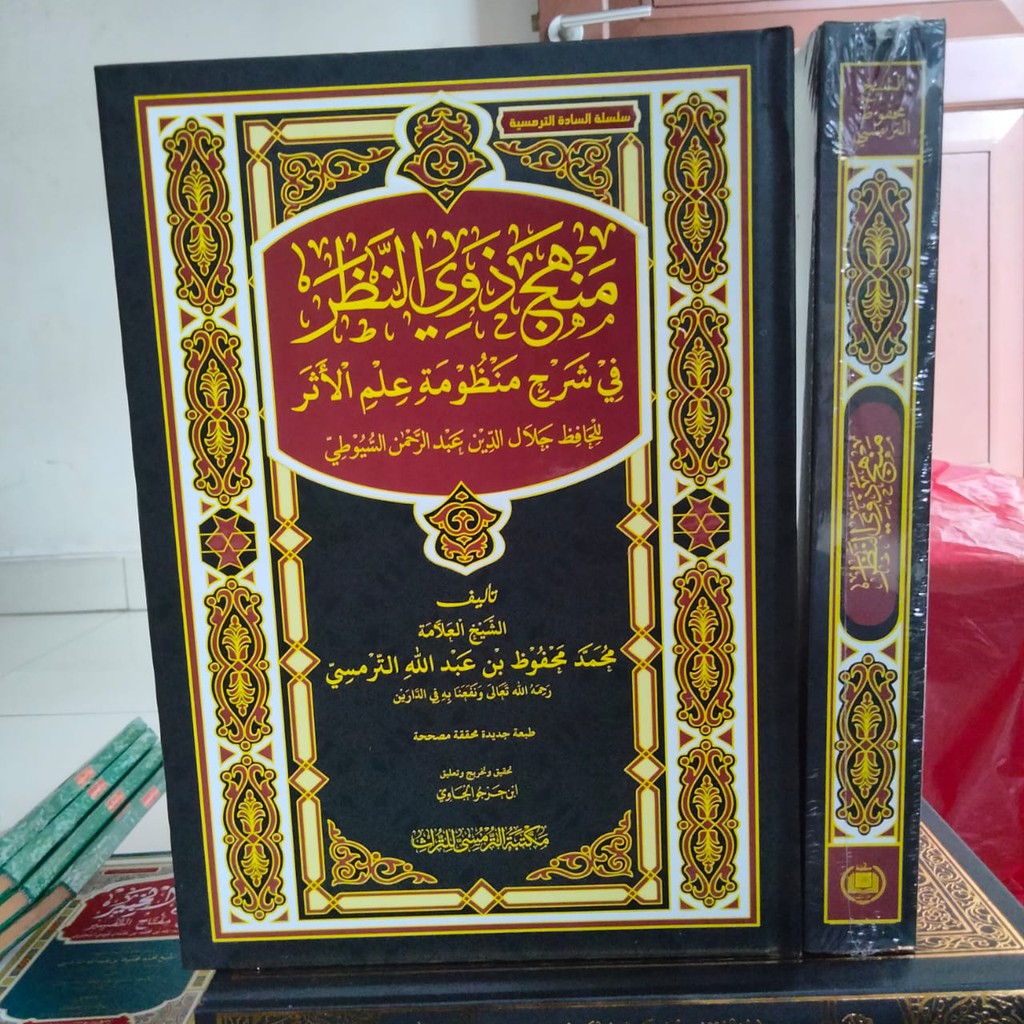 سلسلة السادة الترمسية
مَنْهَجُ ذَوِي النَّظَرْ
فِيْ شَرْحِ مَنْظُوْمَةِ عِلْمِ الْأَثَرَ
لِلْحَافِظ جَلَال الدِّيْن عَبْد الرَّحْمٰن السُّيُوْطِيّ
تأليف
الشَّيْخ الْعَلَّامَة
مُحَمَّد مَحْفُوْظ بْن عَبْد اللهِ التَّرْمَسِيّ
رَحِمَهُ الله تَعَالَى وَنَفَعَنَا بِهِ فِي الدَّارَيْن
طبعة جديدة محققة مصححة
تحقيق وتخريج وتعليق
ابن حرجو الجاوي
مكتبة الترمسي للتراث
الشيخ
محفوظ
الترمسي
مَنْهَجُ ذَوِي النَّظَرْ